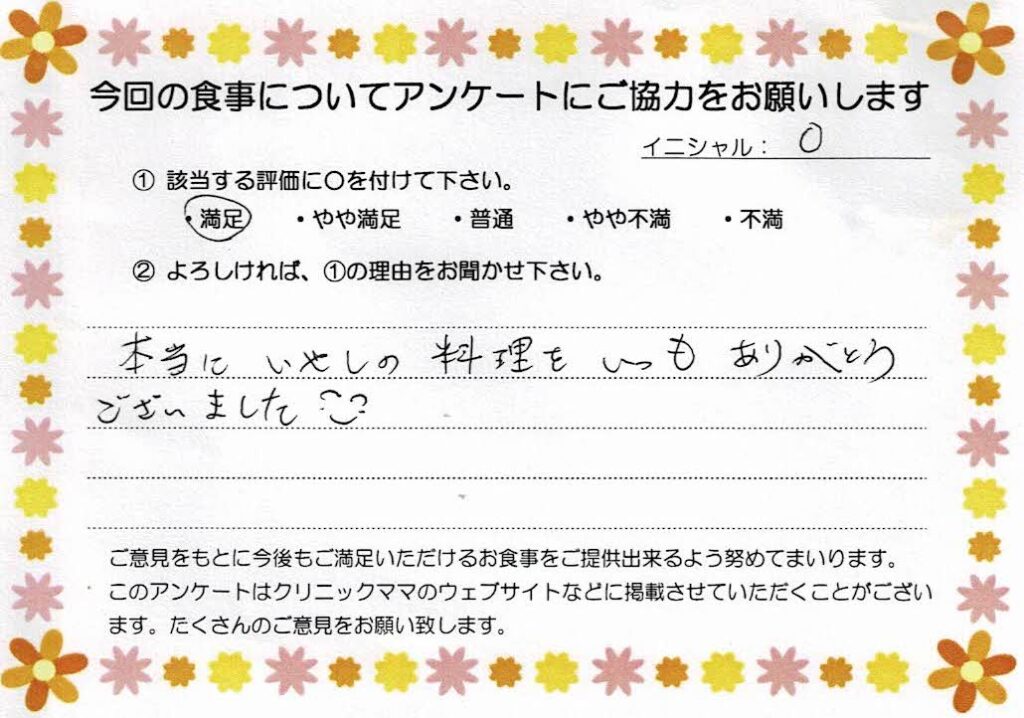 今回の食事についてアンケートにご協力をお願いします
イニシャル： O
① 該当する評価に〇を付けて下さい。
・満足 ・やや満足 ・普通 ・やや不満 ・不満
② よろしければ、①の理由をお聞かせ下さい。
本当に いやしの 料理を いつも ありがとう
ございました
ご意見をもとに今後もご満足いただけるお食事をご提供出来るよう努めてまいります。
このアンケートはクリニックママのウェブサイトなどに掲載させていただくことがござい
ます。たくさんのご意見をお願い致します。